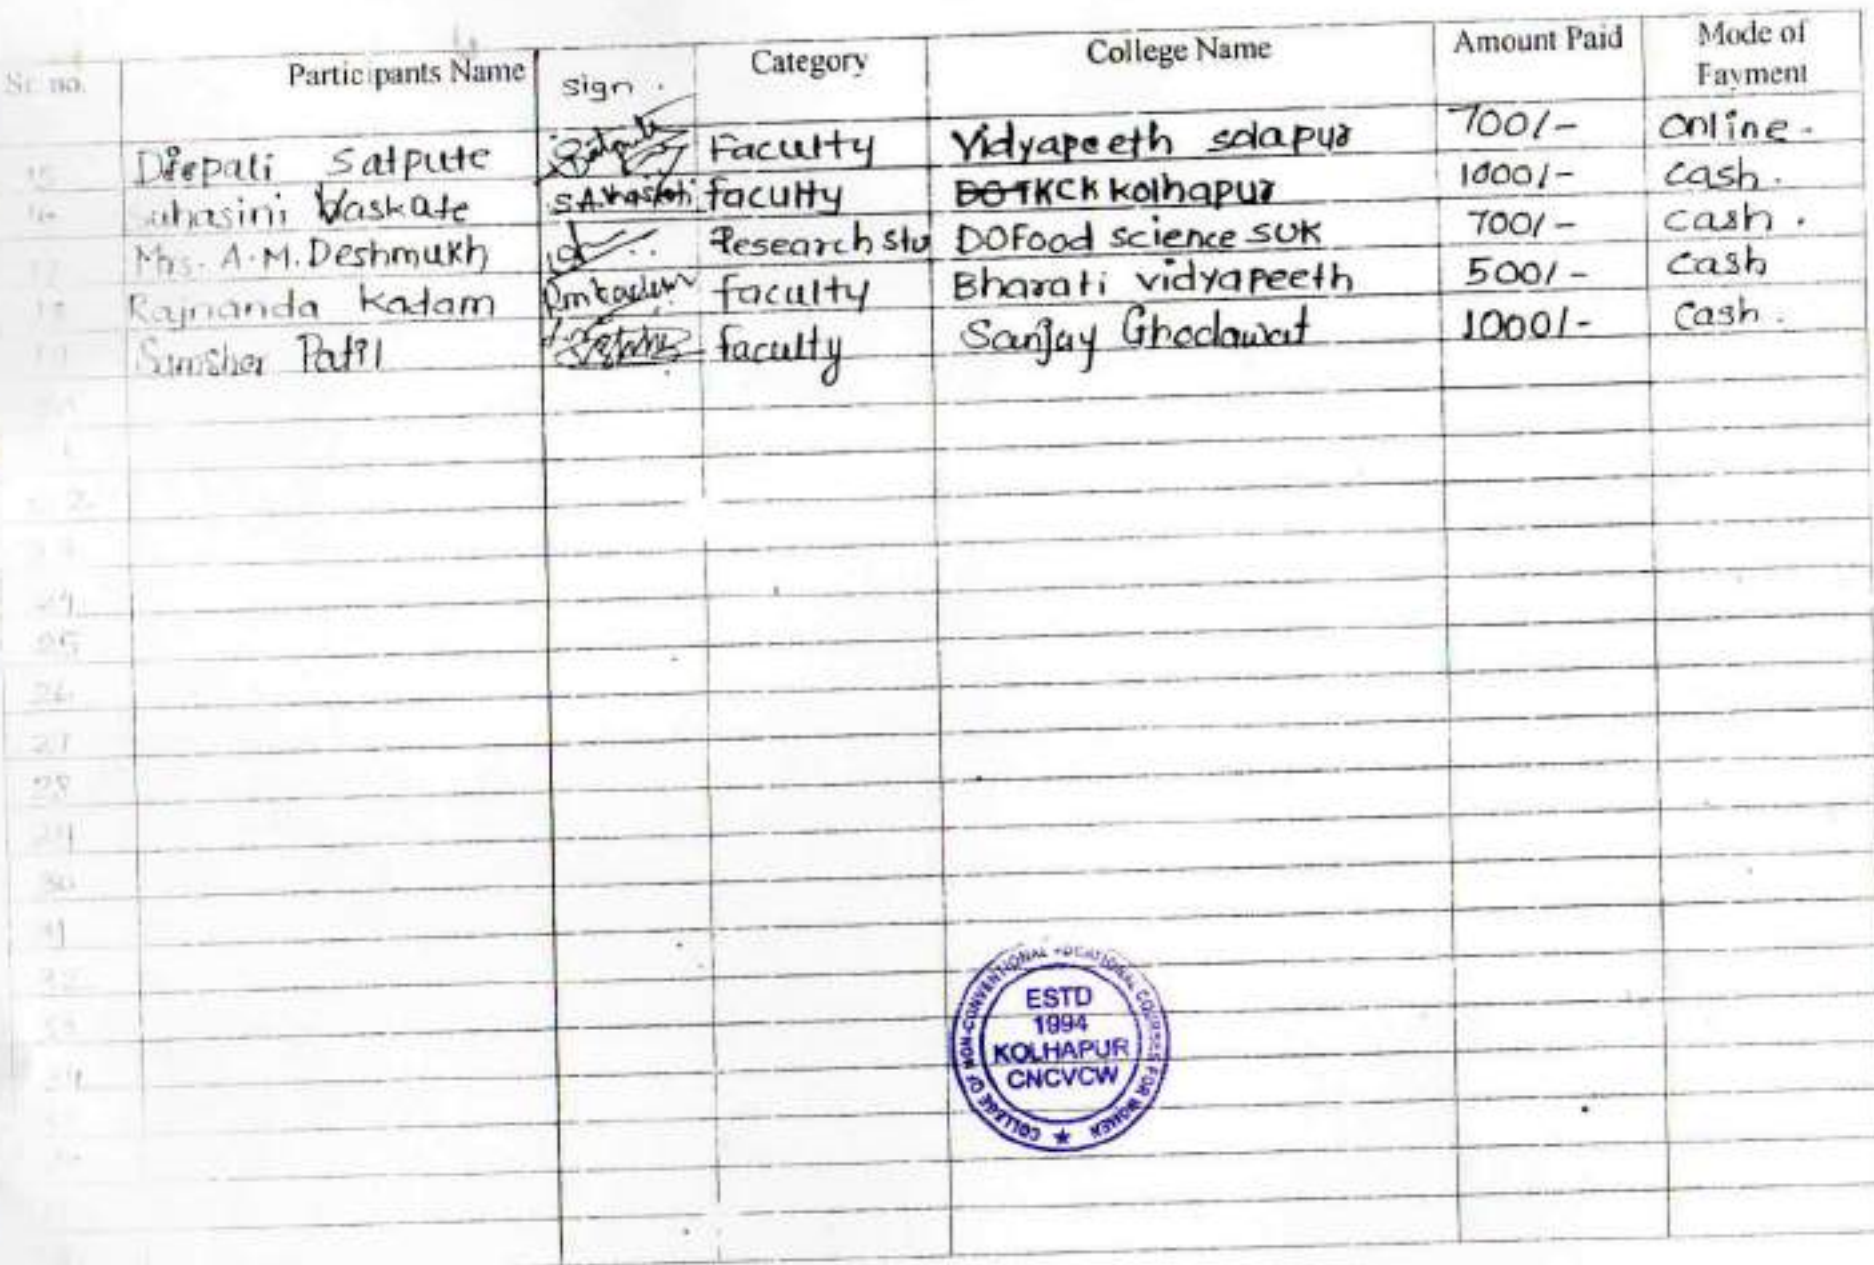 Sr. no. Participants Name sign. Category College Name Amount Paid Mode of
Fayment
15 Deepali Satpute Satpute Faculty Vidyapeeth solapur 700/- Online.
16 Suhasini Vaskate S.A.Vaskate faculty KCK kolhapur 1000/- Cash.
17 Mrs. A.M. Deshmukh Research stu DOFood science SUK 700/- Cash.
18 Rajnanda Kadam Rmkadam faculty Bharati vidyapeeth 500/- Cash
19 Samsher Patil faculty Sanjay Ghodawat 1000/- Cash.
24
25
26
27
28
29
30
31
32
33
34
COLLEGE OF NON-CONVENTIONAL VOCATIONAL COURSES FOR WOMEN
ESTD
1994
KOLHAPUR
CNCVCW